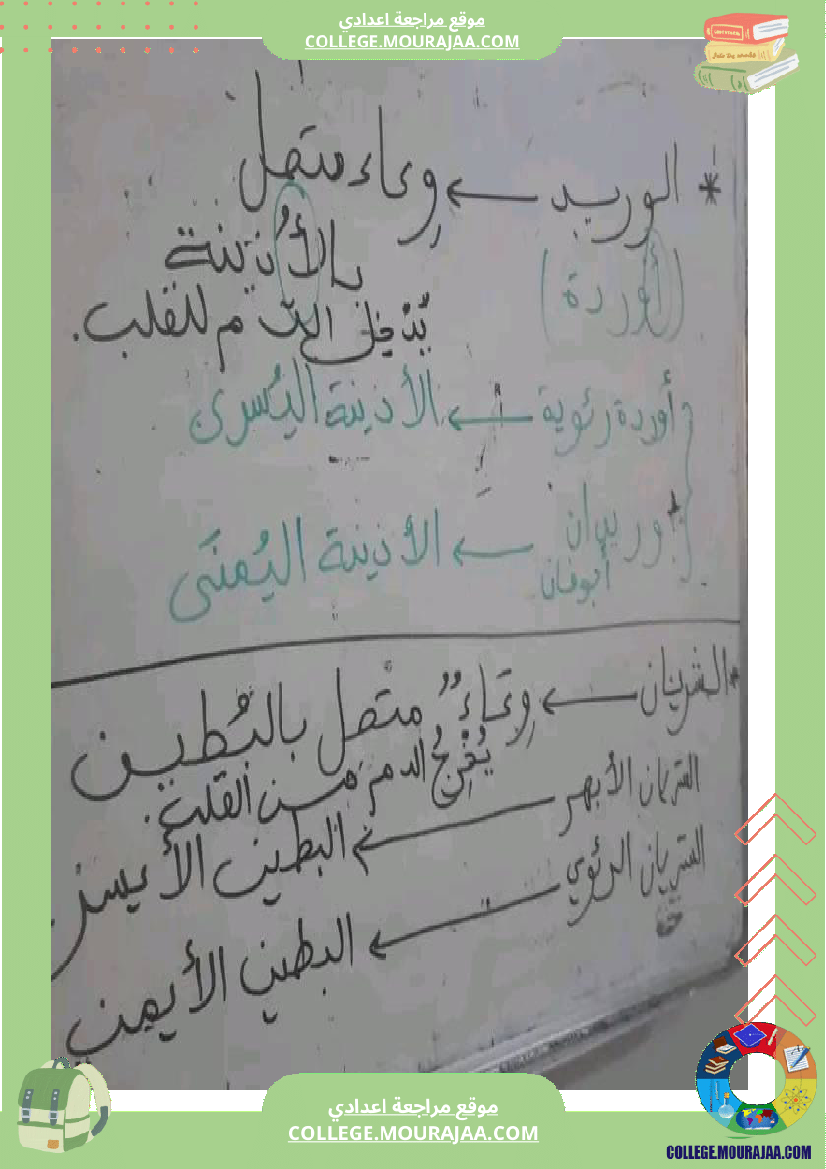 موقع مراجعة اعدادي
COLLEGE.MOURAJAA.COM
* الوريد ← وِعاء متصل
(أوردة) بالأُذينة
يُدْخِل الدّم للقلب.
أوردة رئوية ← الأذينة اليُسرى
وريدان أجوفان ← الأذينة اليُمنَى
* الشريان ← وِعَاءٌ متصل بالبُطين
يُخْرِجُ الدم من القلب.
الشريان الأبهر ← البطين الأيسر
الشريان الرئوي ← البطين الأيمن
موقع مراجعة اعدادي
COLLEGE.MOURAJAA.COM
COLLEGE.MOURAJAA.COM